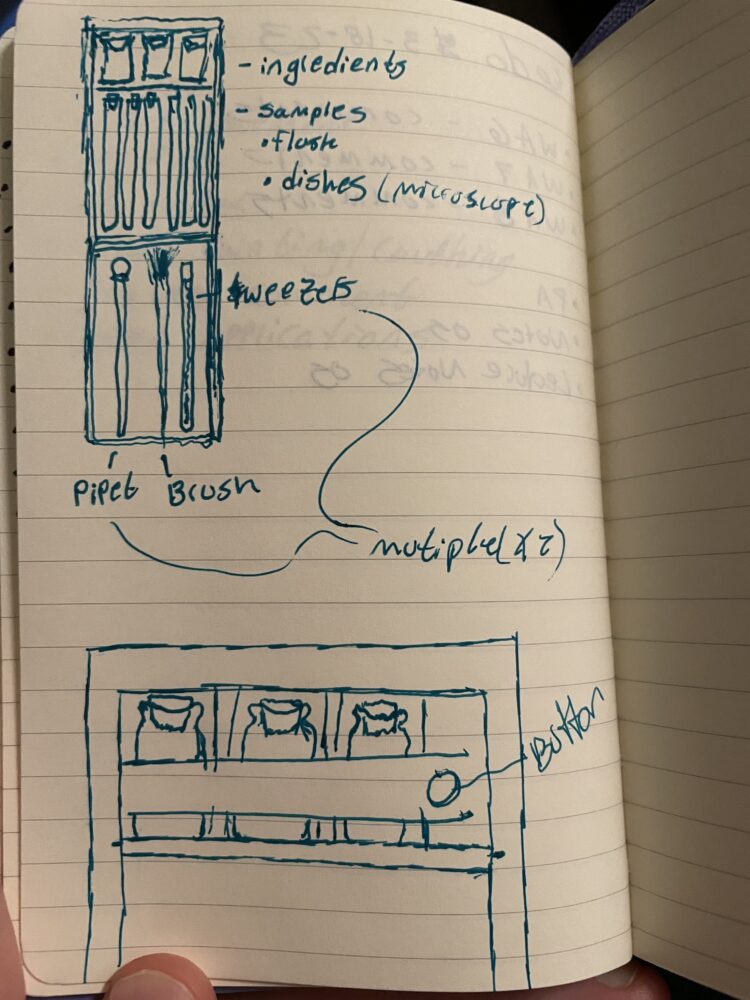 - ingredients
- samples
• flask
• dishes (microscope)
tweezers
Pipet Brush
mutiple (x 2)
Button